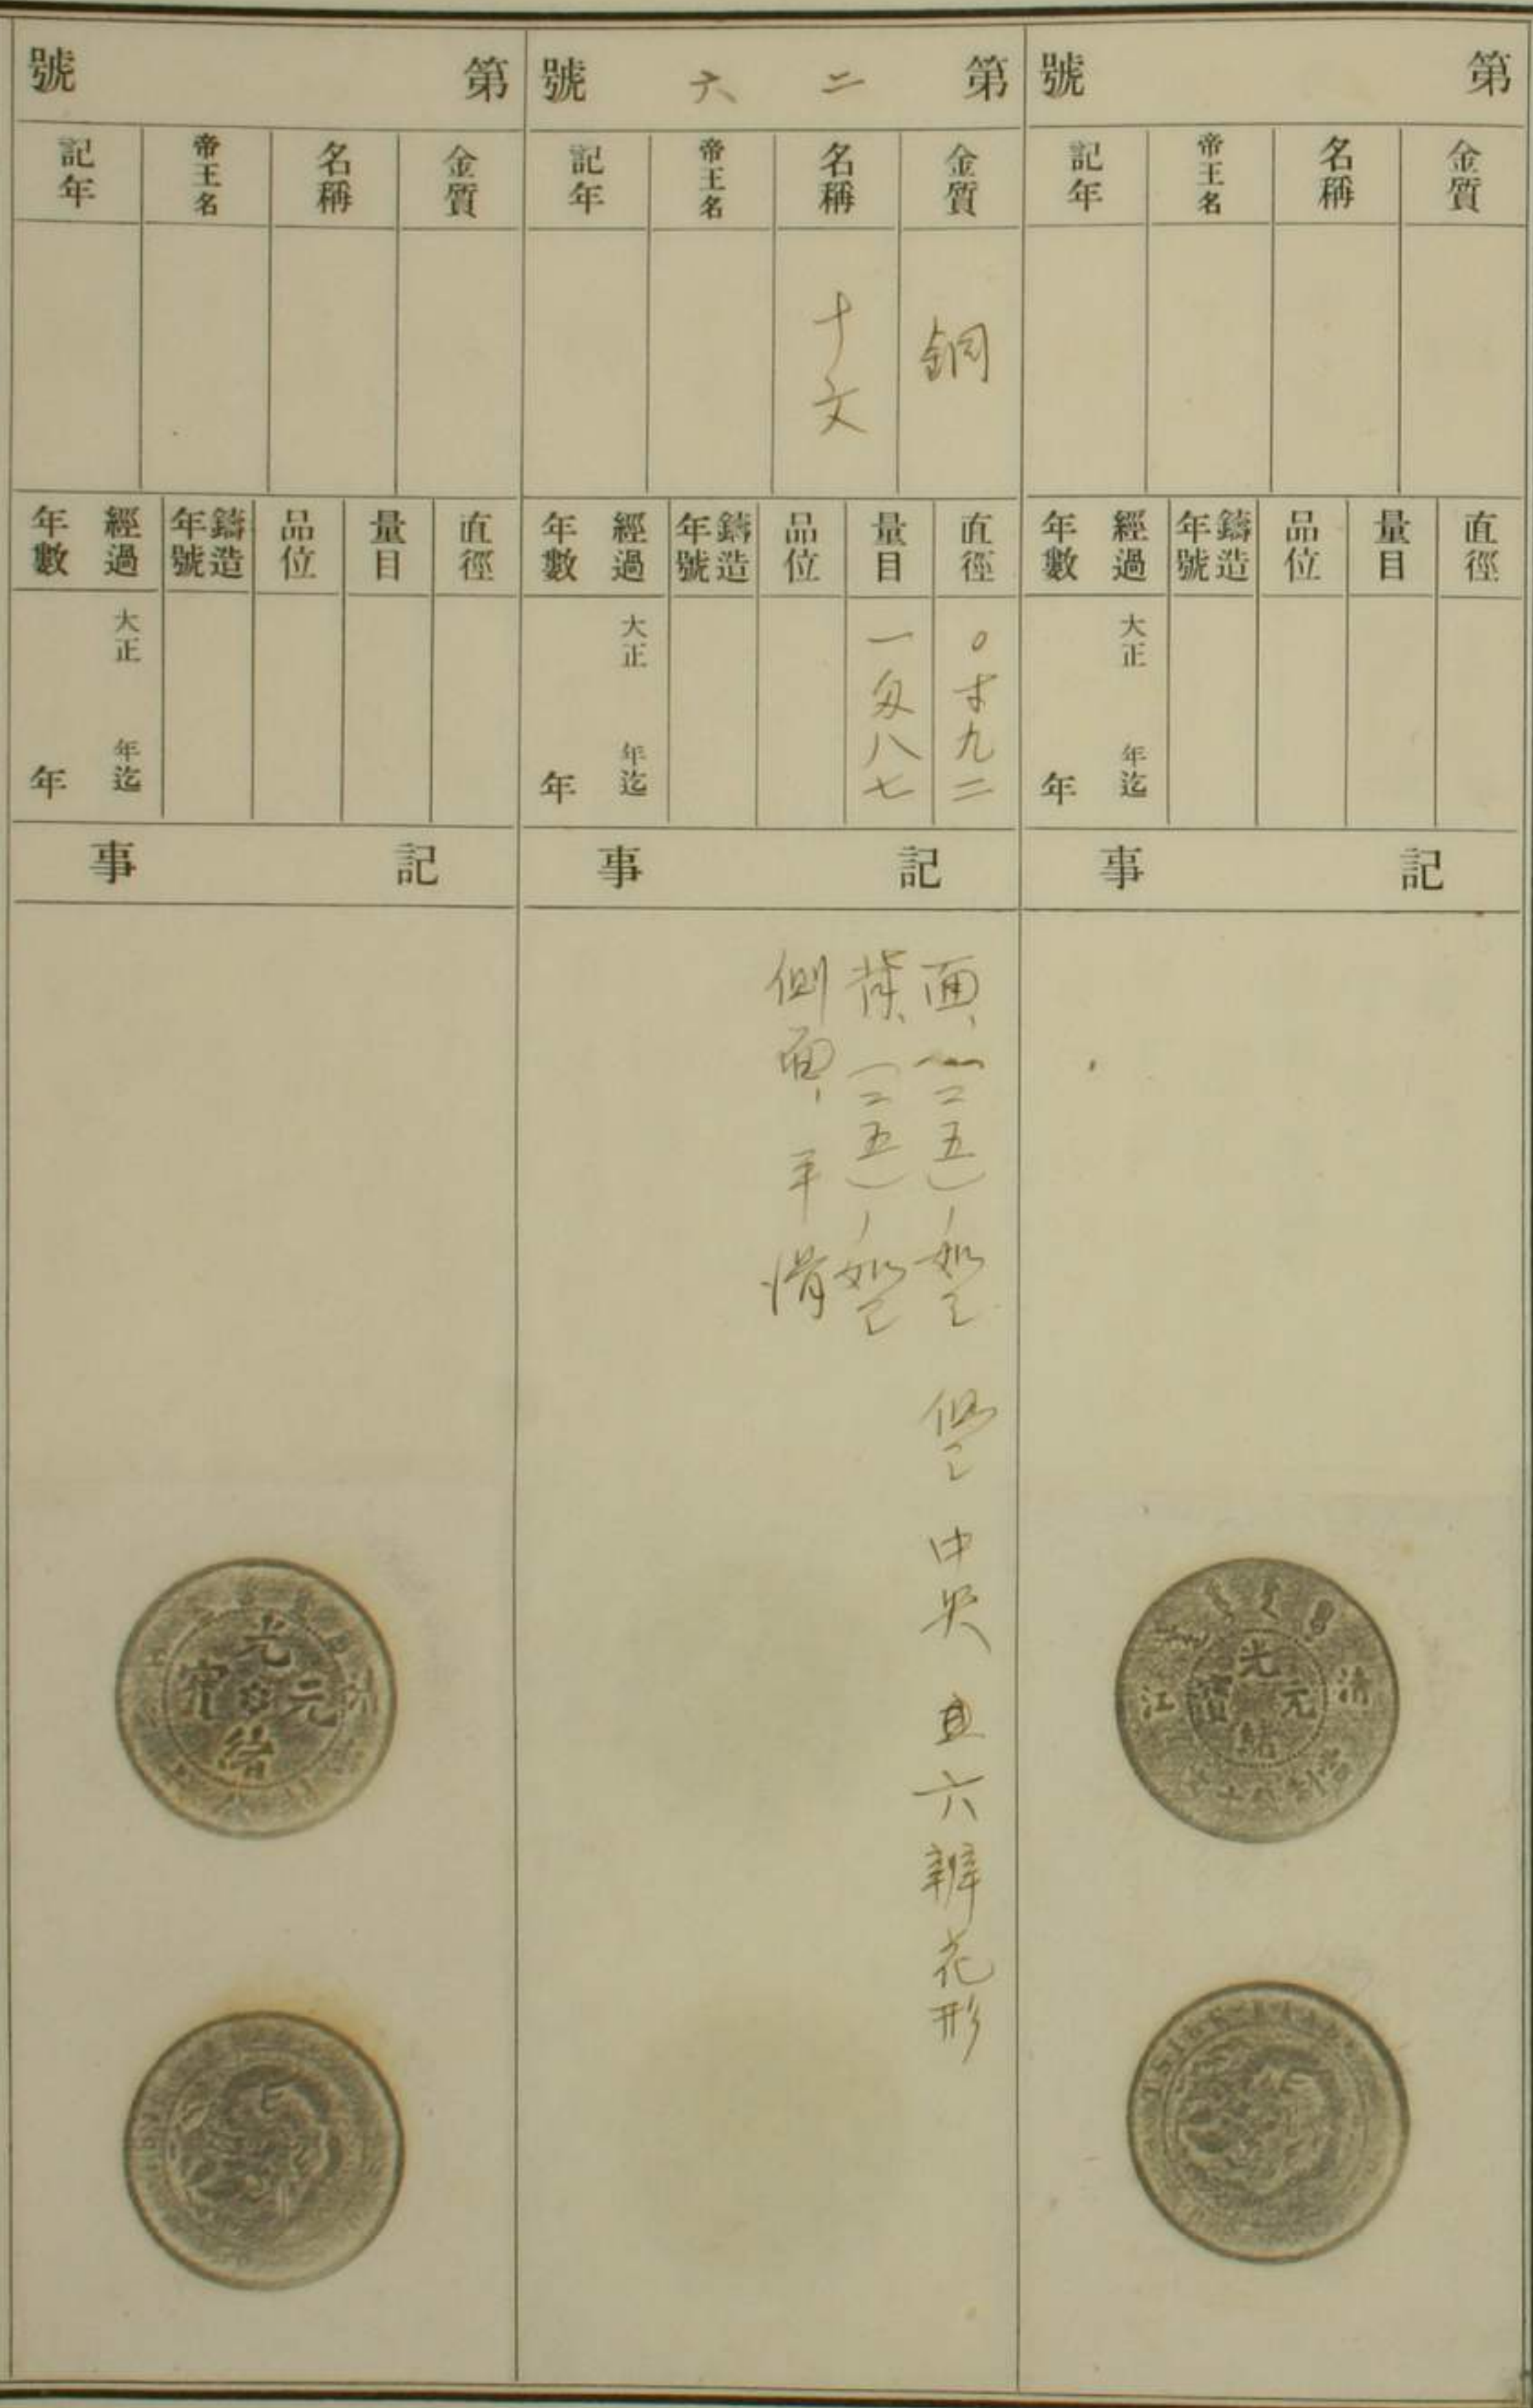 第 號
金質
名稱
帝王名
記年
直徑
量目
品位
鑄造年號
經過年數
大正 年迄
年
記 事
清
江
光緒元寶
第 二六 號
金質
名稱
帝王名
記年
銅
十文
直徑
量目
品位
鑄造年號
經過年數
〇寸九二
一匁八七
大正 年迄
年
記 事
面、(二五)ノ如シ 但シ 中央 直 六辨花形
背、(二五)ノ如シ
側面、平滑
第 號
金質
名稱
帝王名
記年
直徑
量目
品位
鑄造年號
經過年數
大正 年迄
年
記 事
光緒元寶